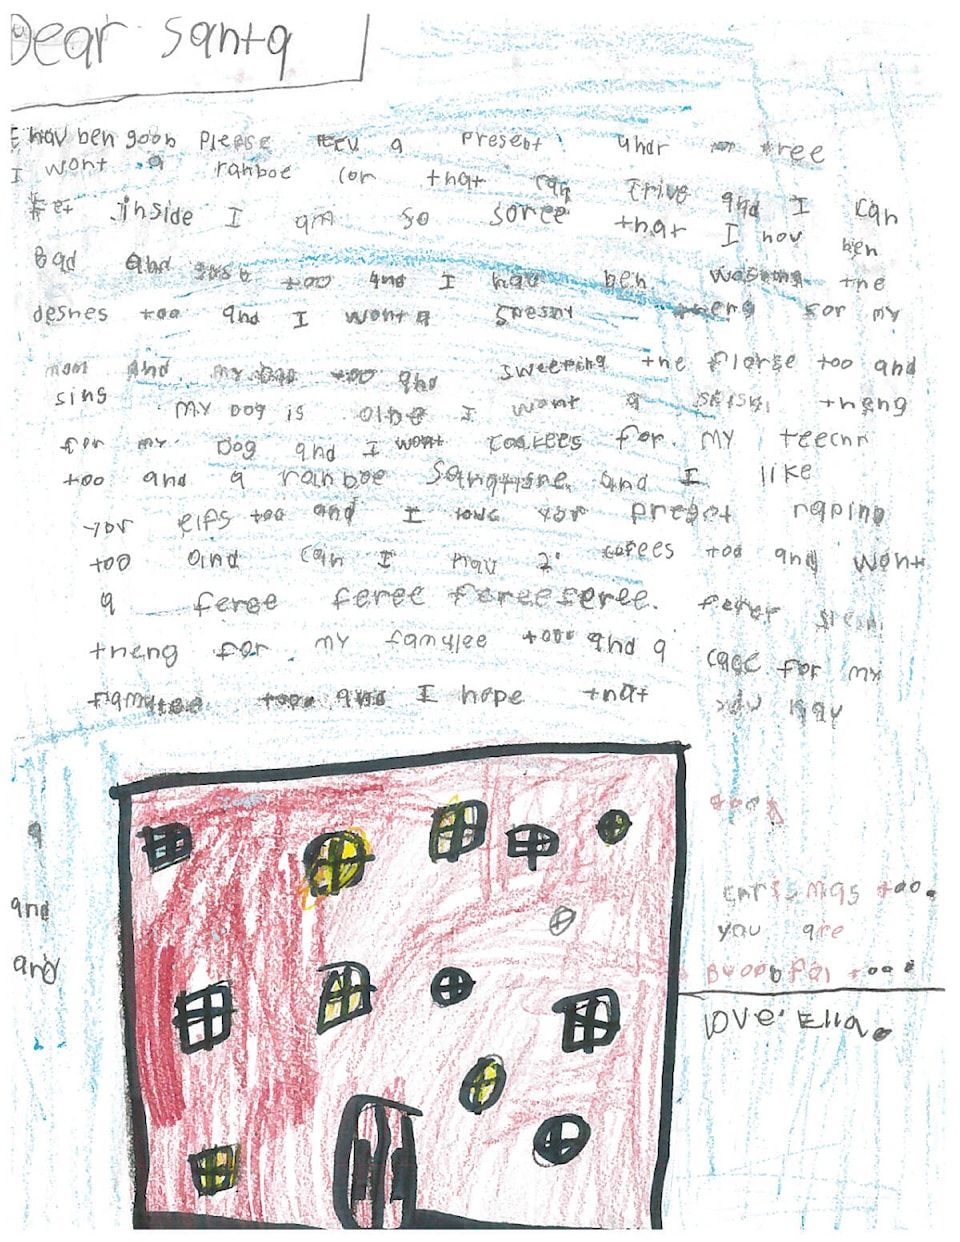 Dear Santa
I hav ben goob Please a Present undr tree
I wont a ranboe cor that can and I can
inside I am so soree that I hav ben
Bad and too and I hav ben the
deshes too and I wont a for my
mom and my Dad too and sweeping the florse too and
sins My Dog is olbe I wont a theng
for my Dog and I wont for my teechr
too and a ranboe and I like
yor elfs too and I love yor presot raping
too and can I hav 2 too and wont
a feree feree fereeferee.
theng for my famylee too and a cage for my
famylee too and I hope that you hav
a goob
and Crismas too.
you are
any too.
Love Ella.